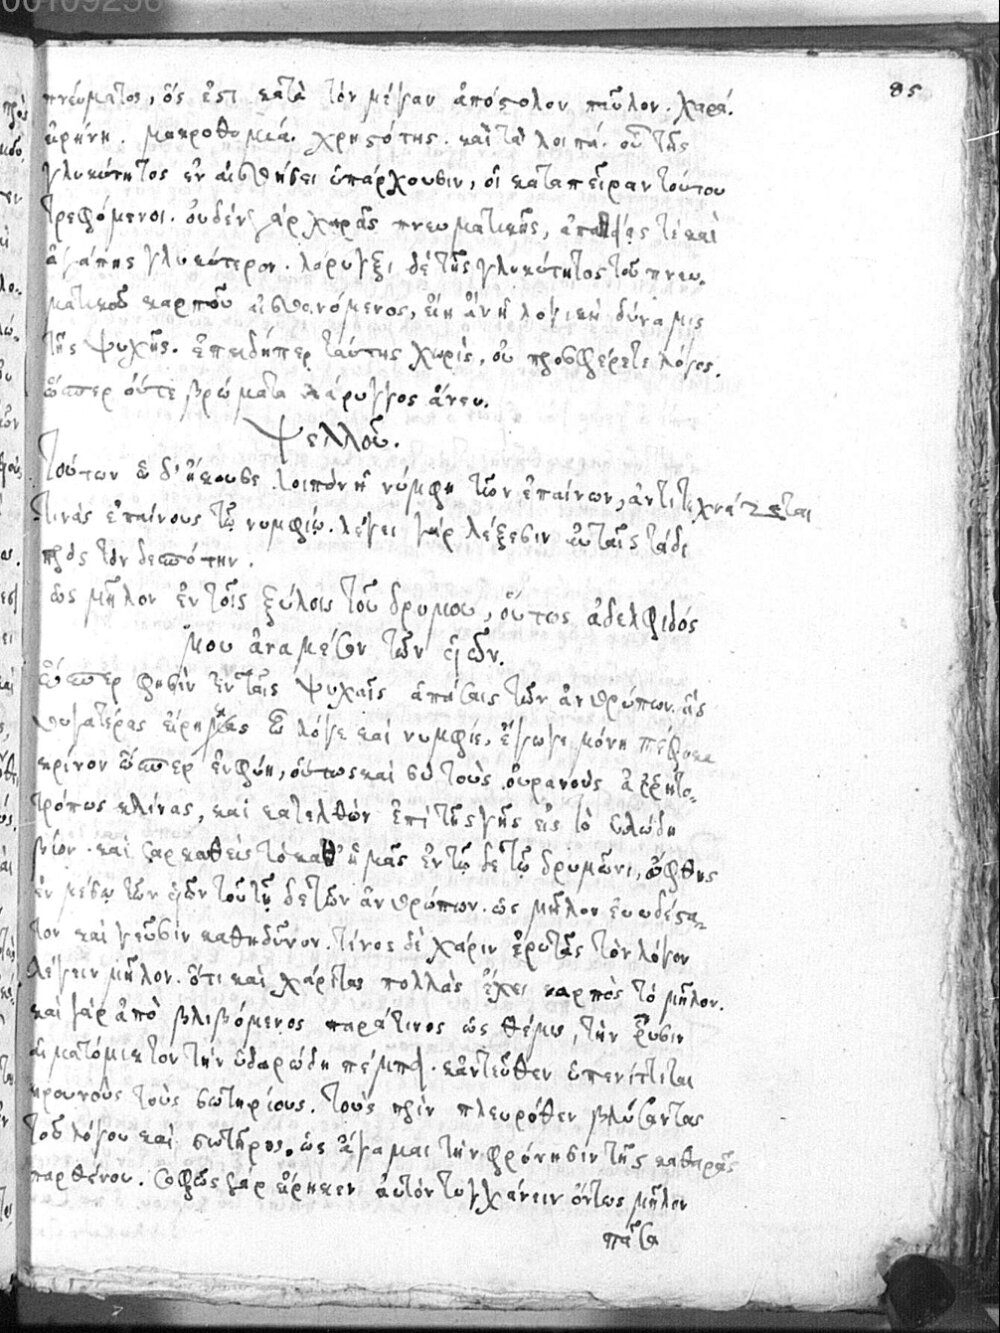 00109256
85
πνεύματος, ὅς ἐστι κατὰ τὸν μέγαν ἀπόστολον παῦλον. χαρά.
εἰρήνη. μακροθυμία. χρηστότης. καὶ τὰ λοιπά. οὗ τῆς
γλυκύτητος ἐν αἰσθήσει ὑπάρχουσιν, οἱ κατὰ πεῖραν τούτου
τρεφόμενοι. οὐδὲν γὰρ χαρᾶς πνευματικῆς, τὲ καὶ
ἀγάπης γλυκύτερον. λάρυγξ, δὲ τῆς γλυκύτητος τοῦ πνευ
ματικοῦ καρποῦ αἰσθανόμενος, εἴη ἂν ἡ λογικὴ δύναμις
τῆς ψυχῆς. ἐπειδήπερ ταύτης χωρίς, οὐ προσφέρεται λόγος.
ὥσπερ οὔτε βρώματα λάρυγγος ἄνευ.
Ψελλοῦ.
Τούτων ἤκουσε λοιπὸν ἡ νύμφη τῶν ἐπαίνων, ἀντιτεχνάζεται
τινὰς ἐπαίνους τῷ νυμφίῳ. λέγει γὰρ λέξεσιν αὐταῖς τάδε
πρὸς τὸν δεσπότην.
ὡς μῆλον ἐν τοῖς ξύλοις τοῦ δρυμοῦ, οὕτως ἀδελφιδός
μου ἀναμέσον τῶν υἱῶν.
ὥσπερ φησὶν ἐν ταῖς ψυχαῖς ἁπάσαις τῶν ἀνθρώπων. ἃς
θυγατέρας εἴρηκας ὦ λόγε καὶ νυμφίε, ἔγωγε μόνη πέφυκα
κρίνον ὥσπερ εὐφυῆ, οὕτως καὶ σὺ τοὺς οὐρανοὺς ἀρρητο
τρόπως κλίνας, καὶ κατελθὼν ἐπὶ τῆς γῆς εἰς τὸ ὑλώδη
βίον. καὶ σαρκωθεὶς τὸ καθ' ἡμᾶς ἐν τῷδε τῷ δρυμῶνι, ὤφθης
ἐν μέσῳ τῶν υἱῶν τουτὶ δὲ τῶν ἀνθρώπων. ὡς μῆλον εὐωδέστα
τον καὶ γεῦσιν καθηδῦνον. τίνος δὲ χάριν ἐρωτᾷς τὸν λόγον
λέγειν μῆλον. ὅτι καὶ χάριτας πολλὰς ἔχει καρπὸς τὸ μῆλον.
καὶ γὰρ ἀποθλιβόμενος παρά τινος ὡς θέμις, τὴν ῥύσιν
αἱματόμικτον τὴν ὑδαρώδη πέμπει. κἀντεῦθεν ὑπαινίττεται
κρουνοὺς τοὺς σωτηρίους. τοὺς πρὶν πλευρόθεν βλύσαντας
τοῦ λόγου καὶ σωτῆρος. ὡς ἄγαμαι τὴν φρόνησιν τῆς καθαρᾶς
παρθένου. σοφῶς γὰρ εἴρηκεν αὐτὸν τυγχάνειν ὄντως μῆλον
πᾶσα